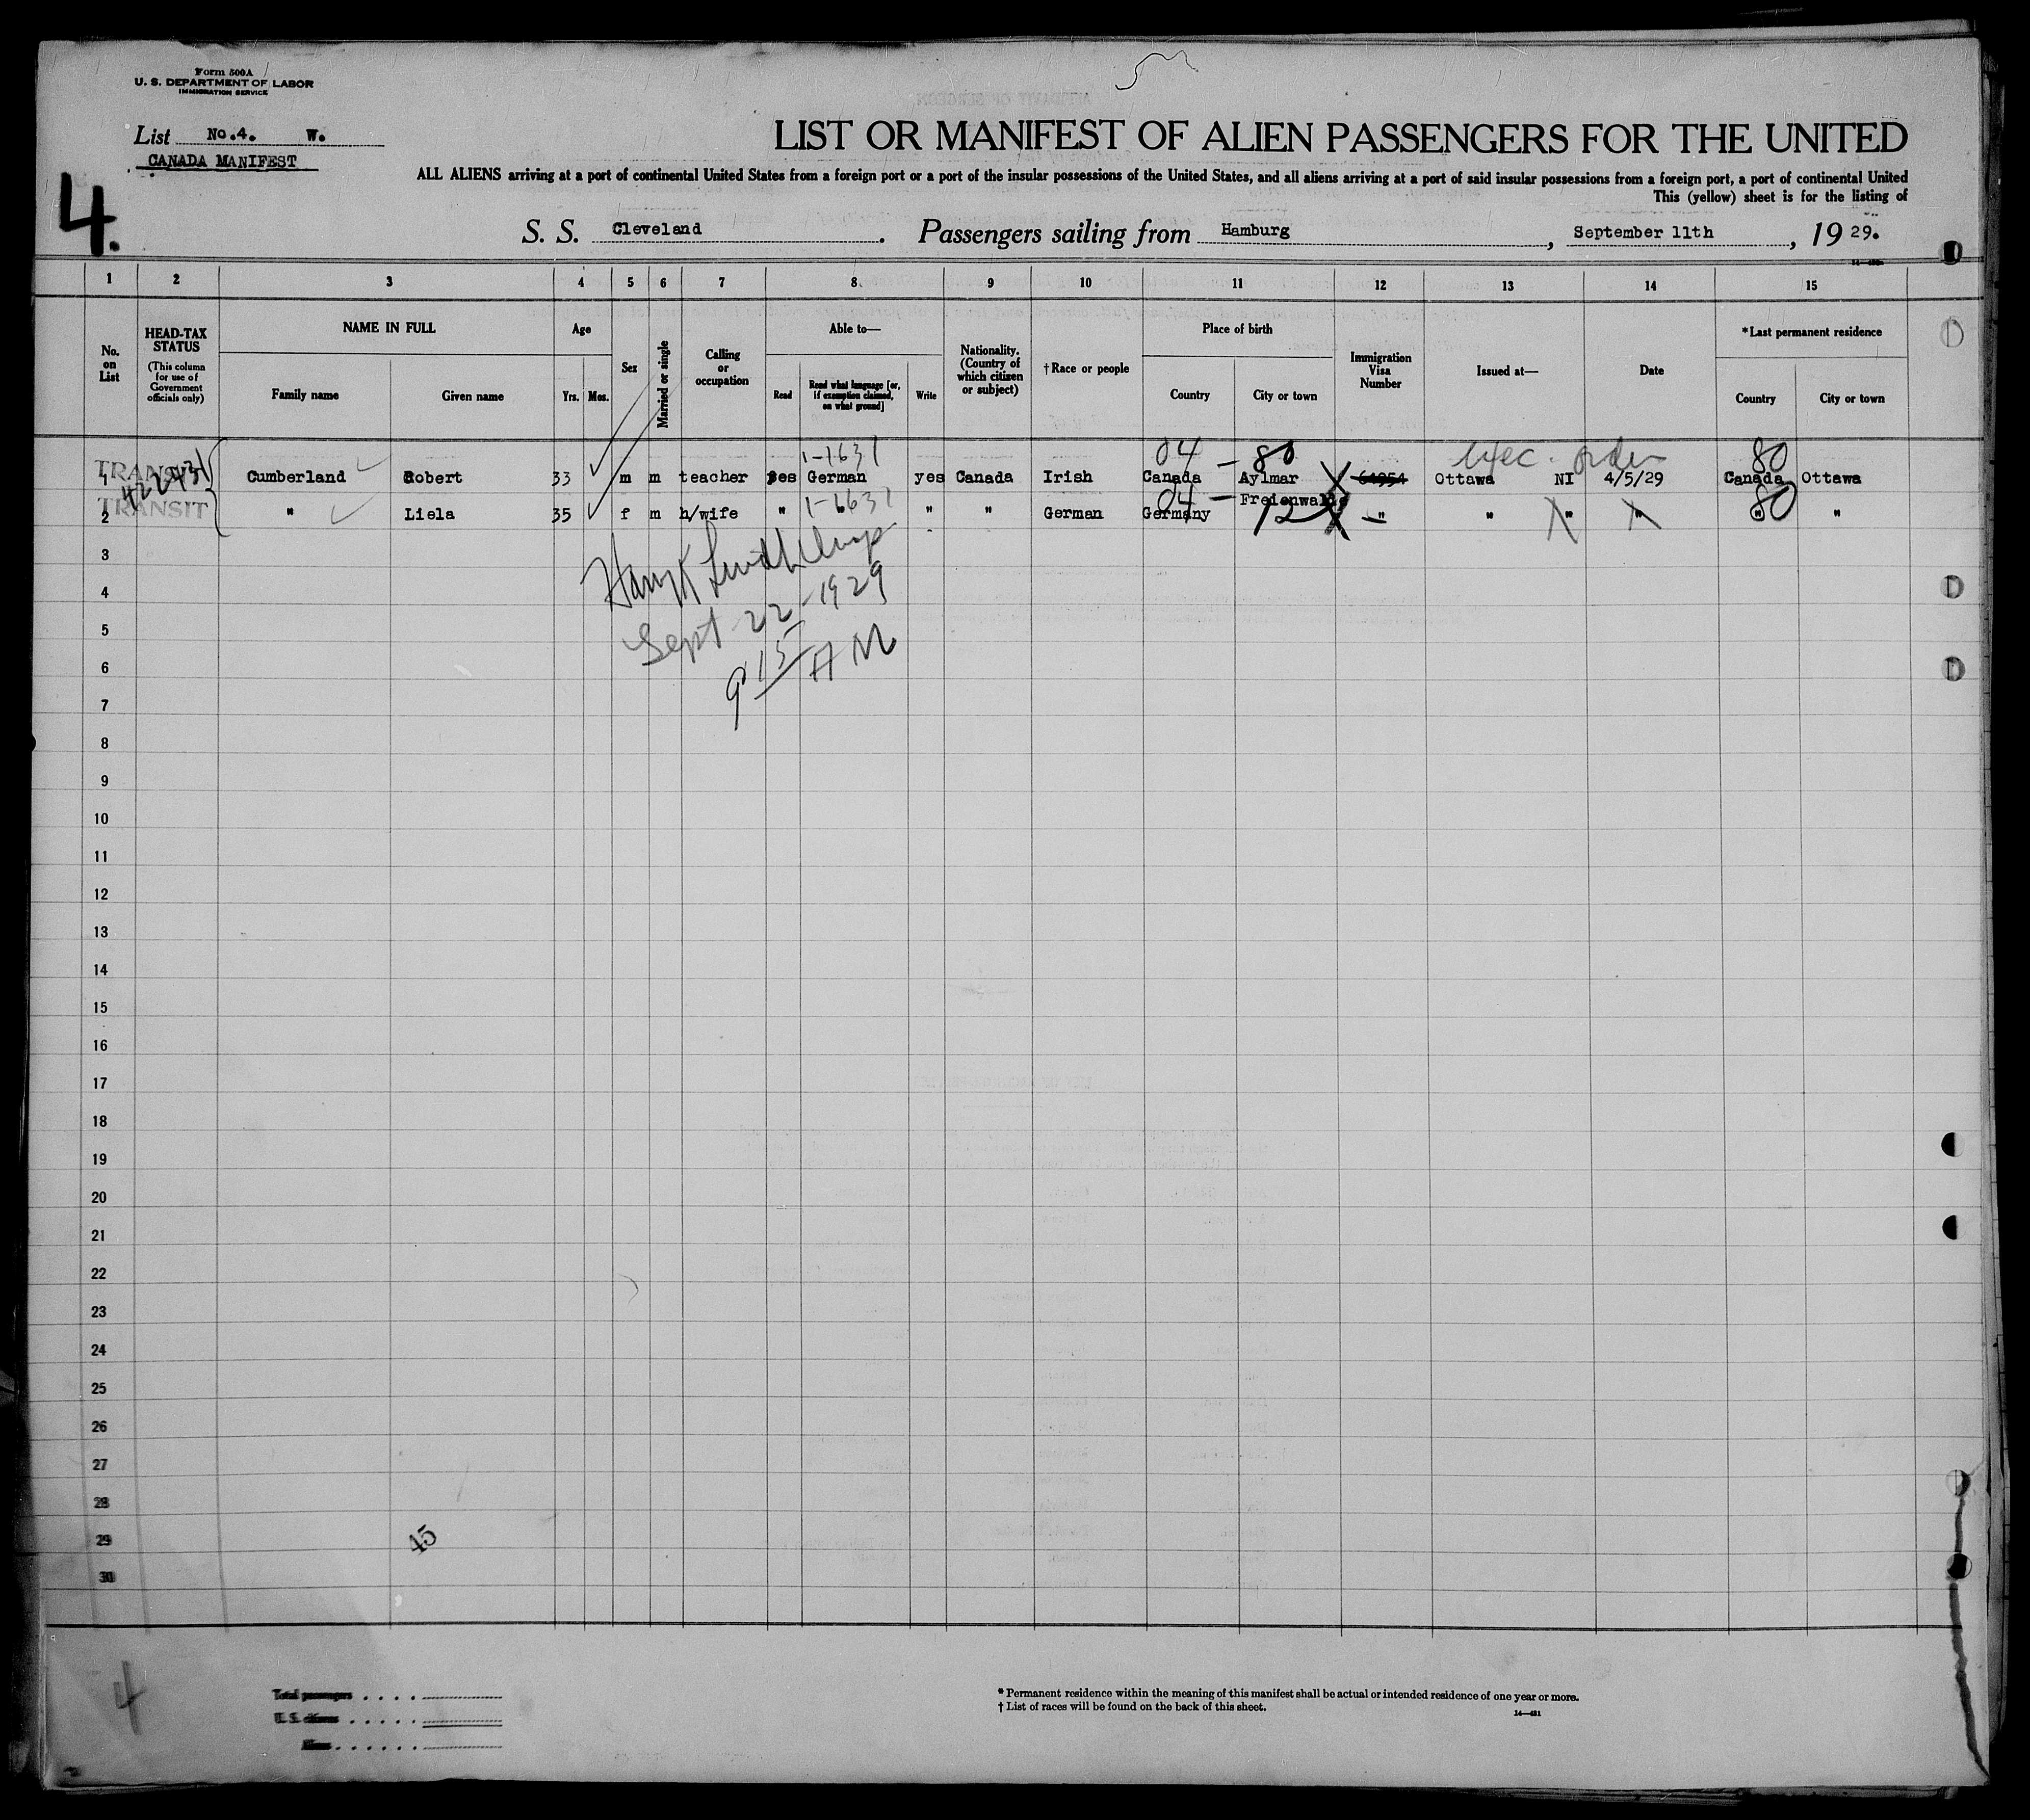 Form 500A
U. S. DEPARTMENT OF LABOR
IMMIGRATION SERVICE
List No.4. W.
CANADA MANIFEST
4.
5
LIST OR MANIFEST OF ALIEN PASSENGERS FOR THE UNITED
ALL ALIENS arriving at a port of continental United States from a foreign port or a port of the insular possessions of the United States, and all aliens arriving at a port of said insular possessions from a foreign port, a port of continental United
This (yellow) sheet is for the listing of
S. S. Cleveland . Passengers sailing from Hamburg , September 11th , 19 29.
1 2 3 4 5 6 7 8 9 10 11 12 13 14 15
No. on List
HEAD-TAX STATUS
(This column for use of Government officials only)
NAME IN FULL
Family name Given name
Age
Yrs. Mos.
Sex
Married or single
Calling or occupation
Able to—
Read
Read what language [or, if exemption claimed, on what ground]
Write
Nationality. (Country of which citizen or subject)
†Race or people
Place of birth
Country City or town
Immigration Visa Number
Issued at—
Date
*Last permanent residence
Country City or town
1-1631 04 - 80 80
1 TRANSIT Cumberland Robert 33 m m teacher yes German yes Canada Irish Canada Aylmar Ottawa NI 4/5/29 Canada Ottawa
2 TRANSIT " Liela 35 f m h/wife " " " " German Germany Freienwalde " " " " " "
1-1631 04 - 12 80
3
4
5
6
7
8
9
10
11
12
13
14
15
16
17
18
19
20
21
22
23
24
25
26
27
28
29
30
Sept 22-1929
9 15 AM
45
4
Total passengers
U. S. citizens
Aliens
* Permanent residence within the meaning of this manifest shall be actual or intended residence of one year or more.
† List of races will be found on the back of this sheet.
14—481